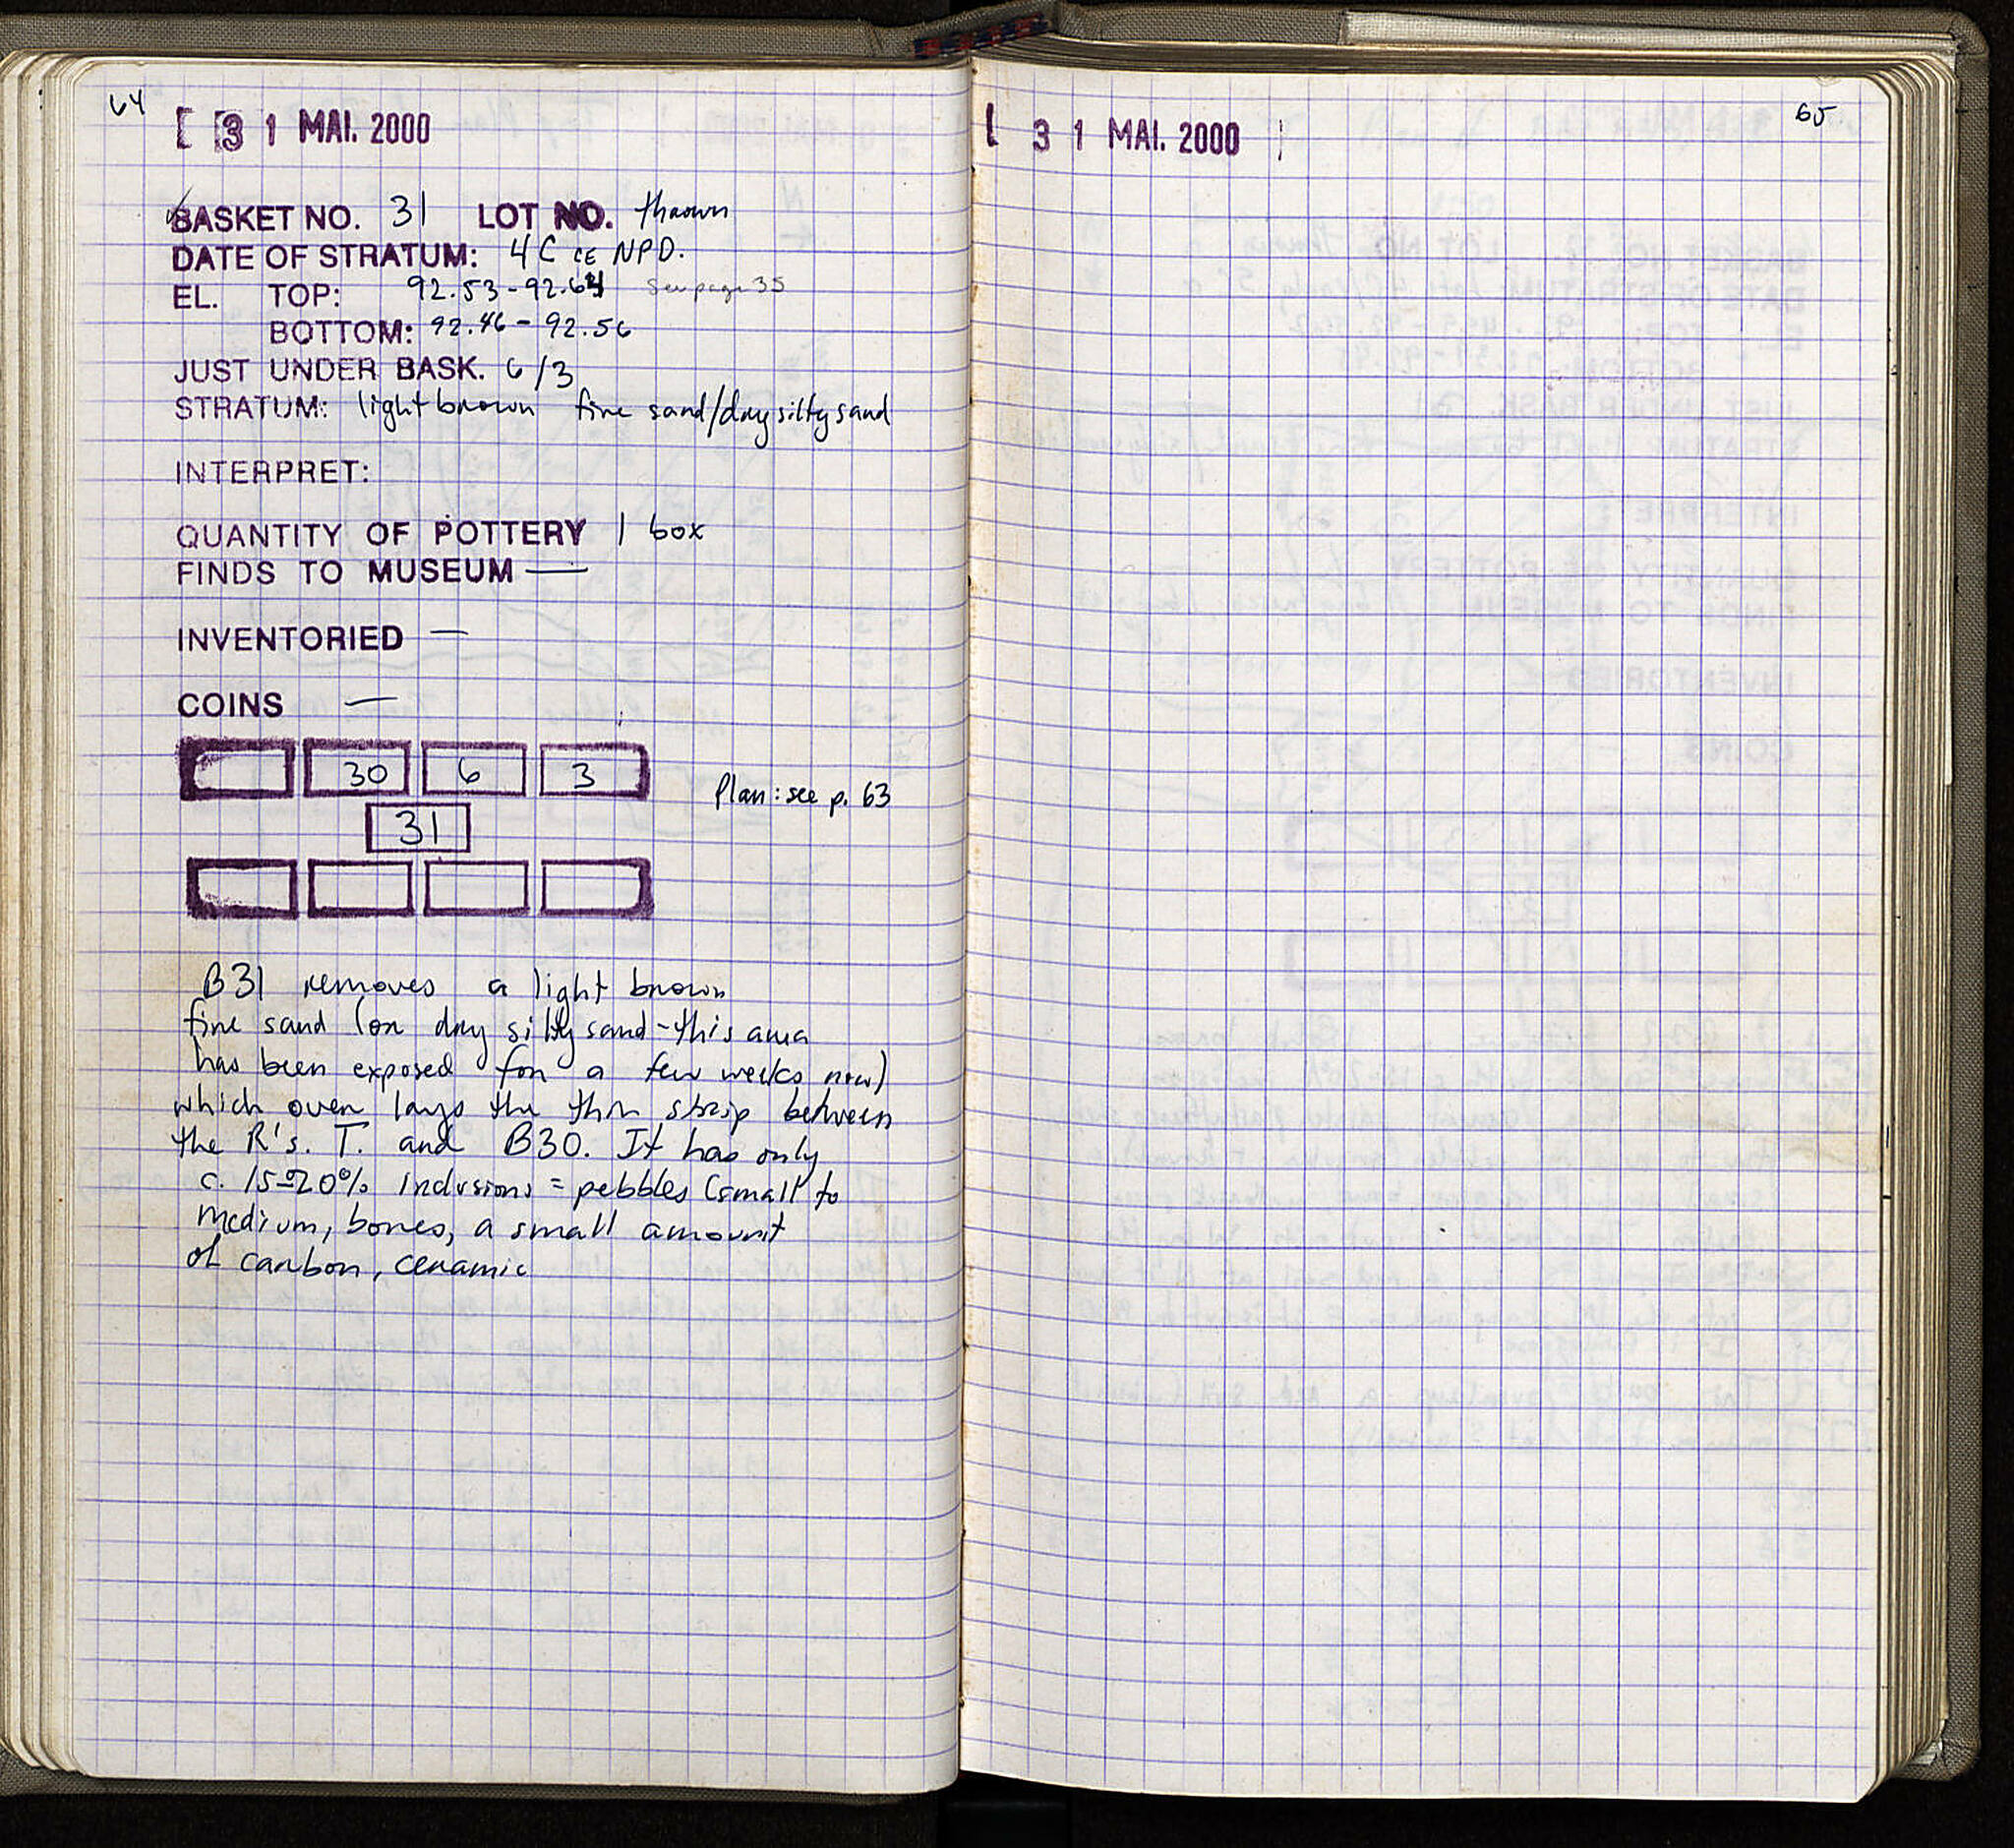 64
31 MAI. 2000
BASKET NO. 31 LOT NO. thrown
DATE OF STRATUM: 4 C CE NPD.
EL. TOP: 92.53-92.64 See page 35
BOTTOM: 92.46-92.56
JUST UNDER BASK. 6/3
STRATUM: light brown fine sand/dry silty sand
INTERPRET:
QUANTITY OF POTTERY 1 box
FINDS TO MUSEUM —
INVENTORIED —
COINS —
30 6 3
Plan: see p. 63
31
B31 removes a light brown
fine sand (or dry silty sand - this area
has been exposed for a few weeks now)
which over lays the thin strip between
the R's. T. and B30. It has only
c. 15-20% inclusions = pebbles (small to
medium, bones, a small amount
of carbon, ceramic
65
31 MAI. 2000